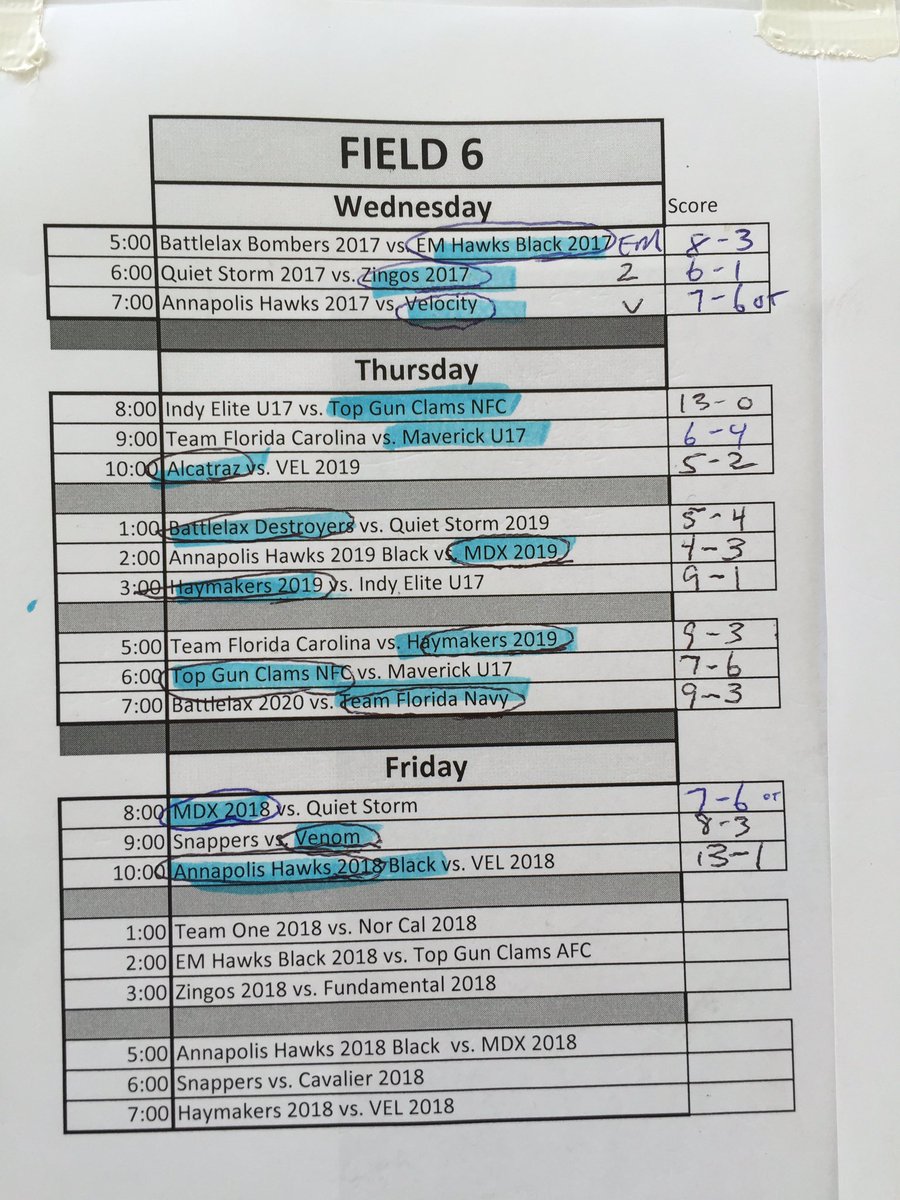 FIELD 6
Wednesday Score
5:00 Battlelax Bombers 2017 vs. EM Hawks Black 2017 EM 8-3
6:00 Quiet Storm 2017 vs. Zingos 2017 Z 6-1
7:00 Annapolis Hawks 2017 vs. Velocity V 7-6 OT
Thursday
8:00 Indy Elite U17 vs. Top Gun Clams NFC 13-0
9:00 Team Florida Carolina vs. Maverick U17 6-4
10:00 Alcatraz vs. VEL 2019 5-2
1:00 Battlelax Destroyers vs. Quiet Storm 2019 5-4
2:00 Annapolis Hawks 2019 Black vs. MDX 2019 4-3
3:00 Haymakers 2019 vs. Indy Elite U17 9-1
5:00 Team Florida Carolina vs. Haymakers 2019 9-3
6:00 Top Gun Clams NFC vs. Maverick U17 7-6
7:00 Battlelax 2020 vs. Team Florida Navy 9-3
Friday
8:00 MDX 2018 vs. Quiet Storm 7-6 OT
9:00 Snappers vs. Venom 8-3
10:00 Annapolis Hawks 2018 Black vs. VEL 2018 13-1
1:00 Team One 2018 vs. Nor Cal 2018
2:00 EM Hawks Black 2018 vs. Top Gun Clams AFC
3:00 Zingos 2018 vs. Fundamental 2018
5:00 Annapolis Hawks 2018 Black vs. MDX 2018
6:00 Snappers vs. Cavalier 2018
7:00 Haymakers 2018 vs. VEL 2018